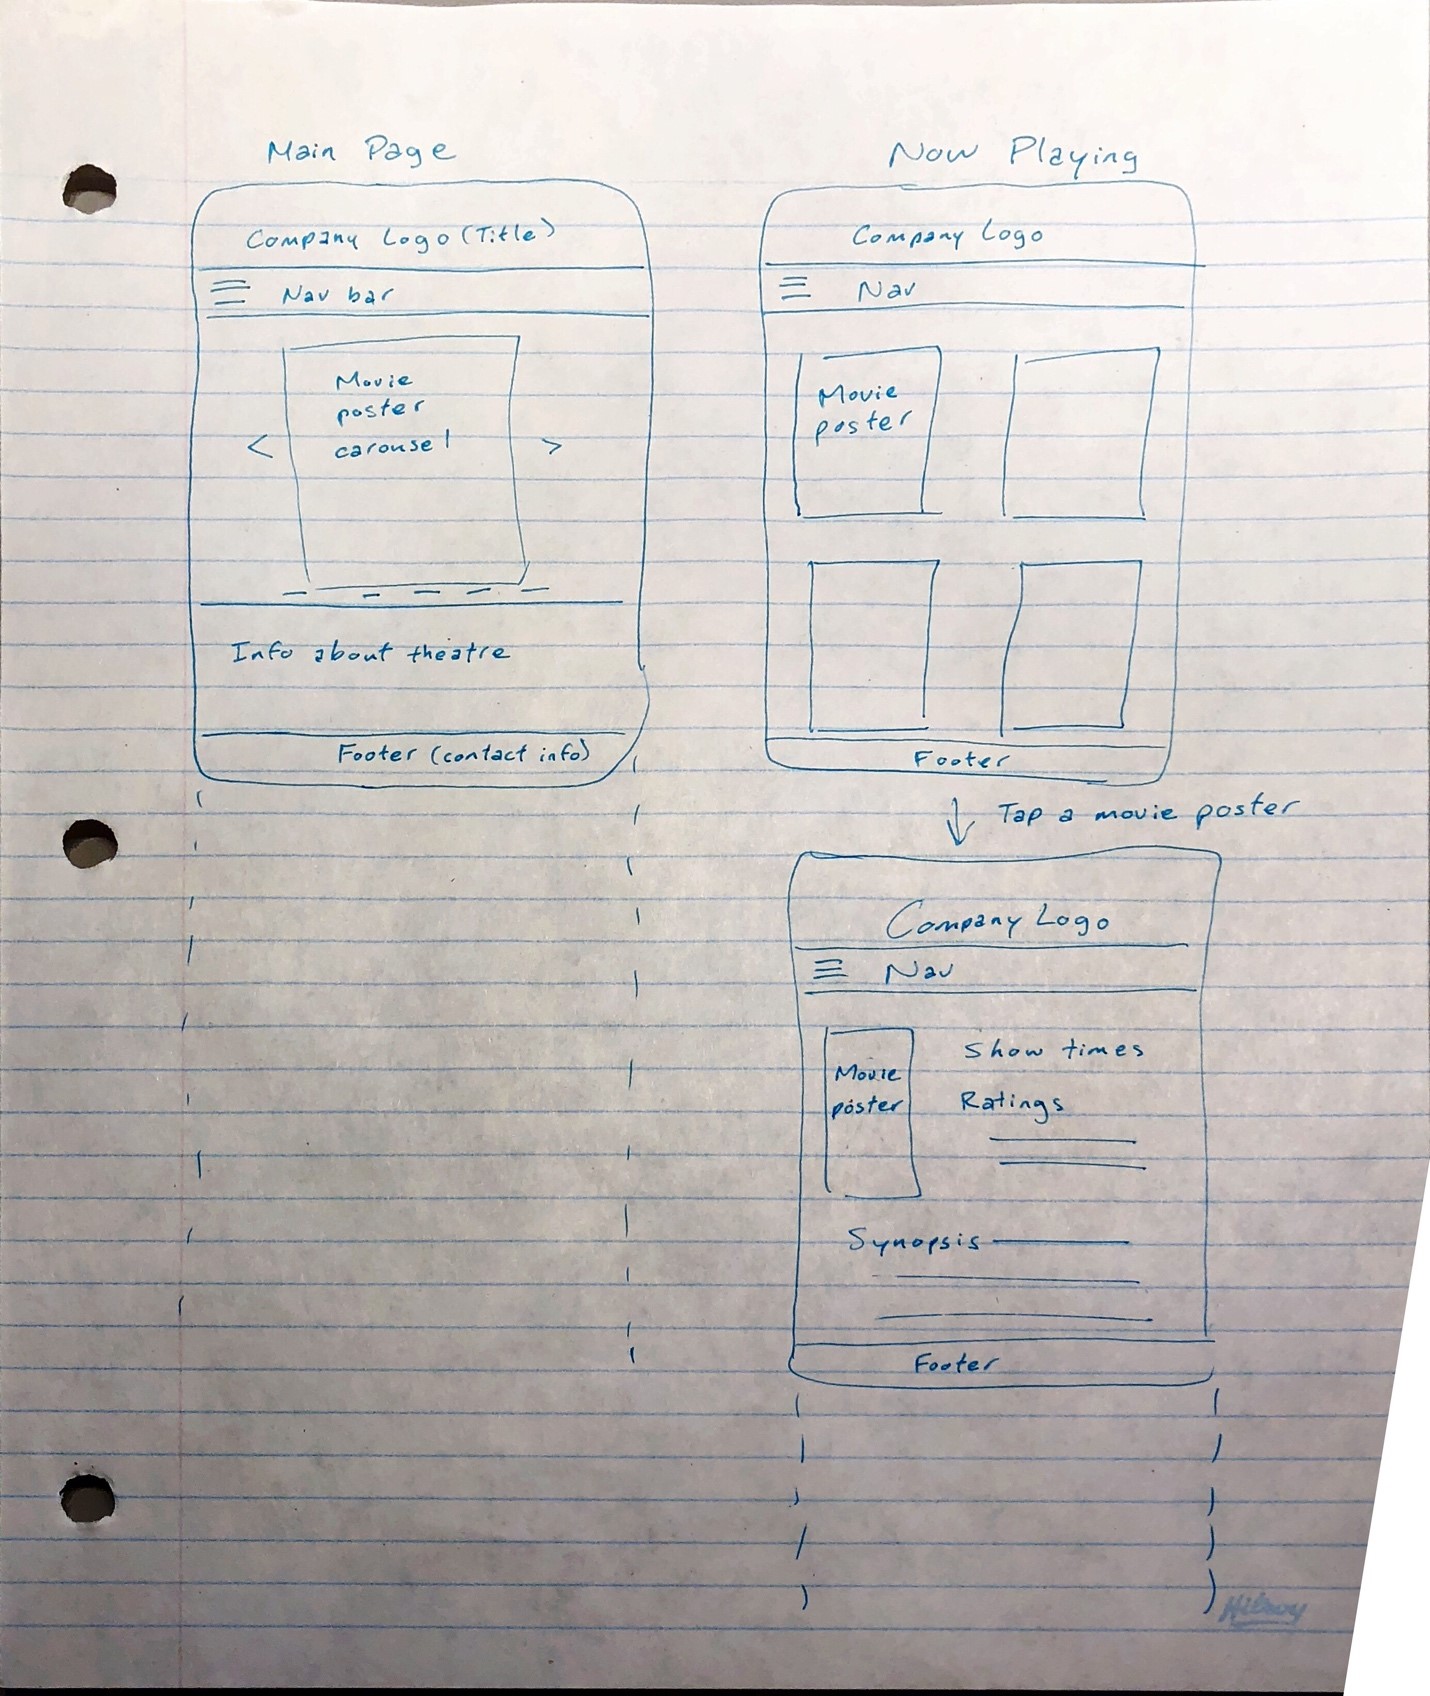 Main Page
Company Logo (Title)
Nav bar
Movie
poster
carousel
<
>
Info about theatre
Footer (contact info)
Now Playing
Company Logo
Nav
Movie
poster
Footer
Tap a movie poster
Company Logo
Nav
Movie
poster
Show times
Ratings
Synopsis
Footer